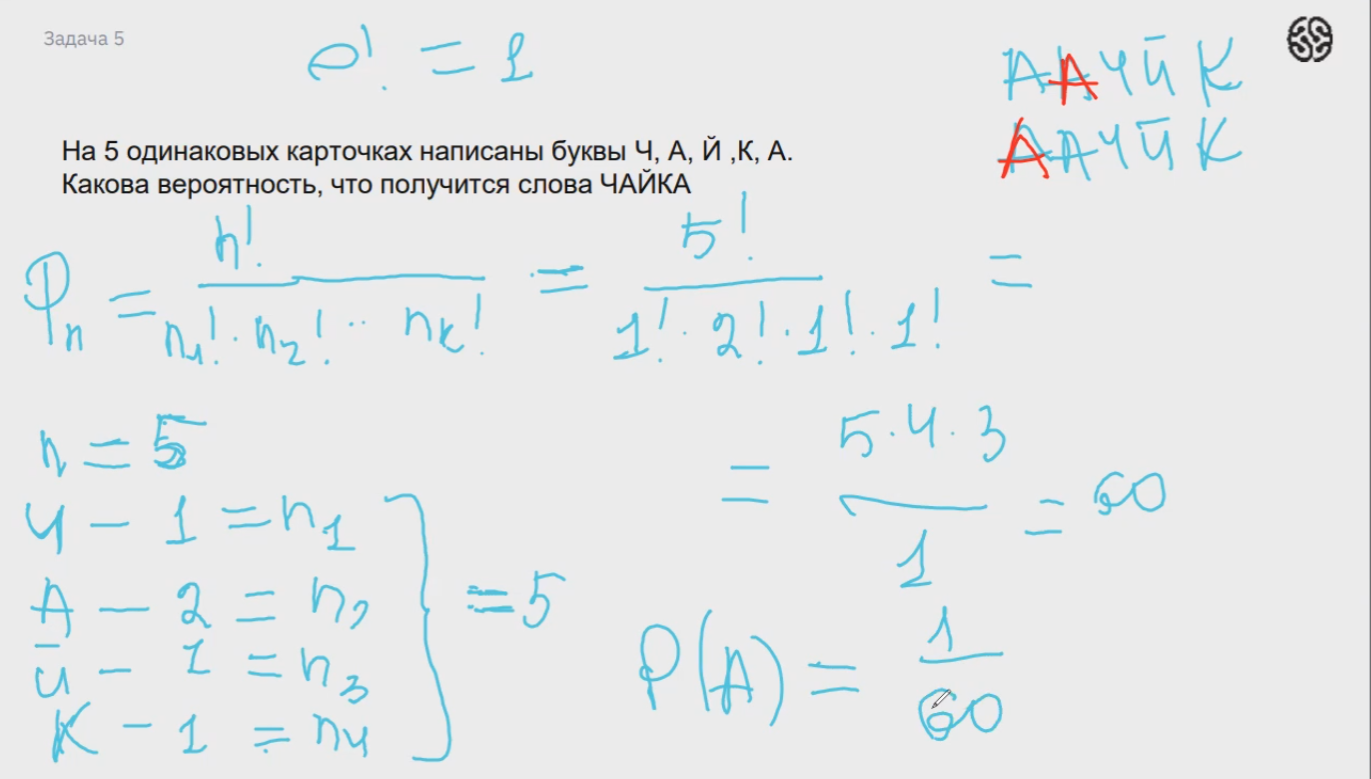 Задача 5
0! = 1
А А Ч Й К
А А Ч Й К
На 5 одинаковых карточках написаны буквы Ч, А, Й ,К, А.
Какова вероятность, что получится слова ЧАЙКА
Pn = n! / n1! · n2! ·· nk! = 5! / 1! · 2! · 1! · 1! =
= 5·4·3 / 1 = 60
n = 5
Ч – 1 = n1
А – 2 = n2
Й – 1 = n3
К – 1 = n4
= 5
P(A) = 1 / 60